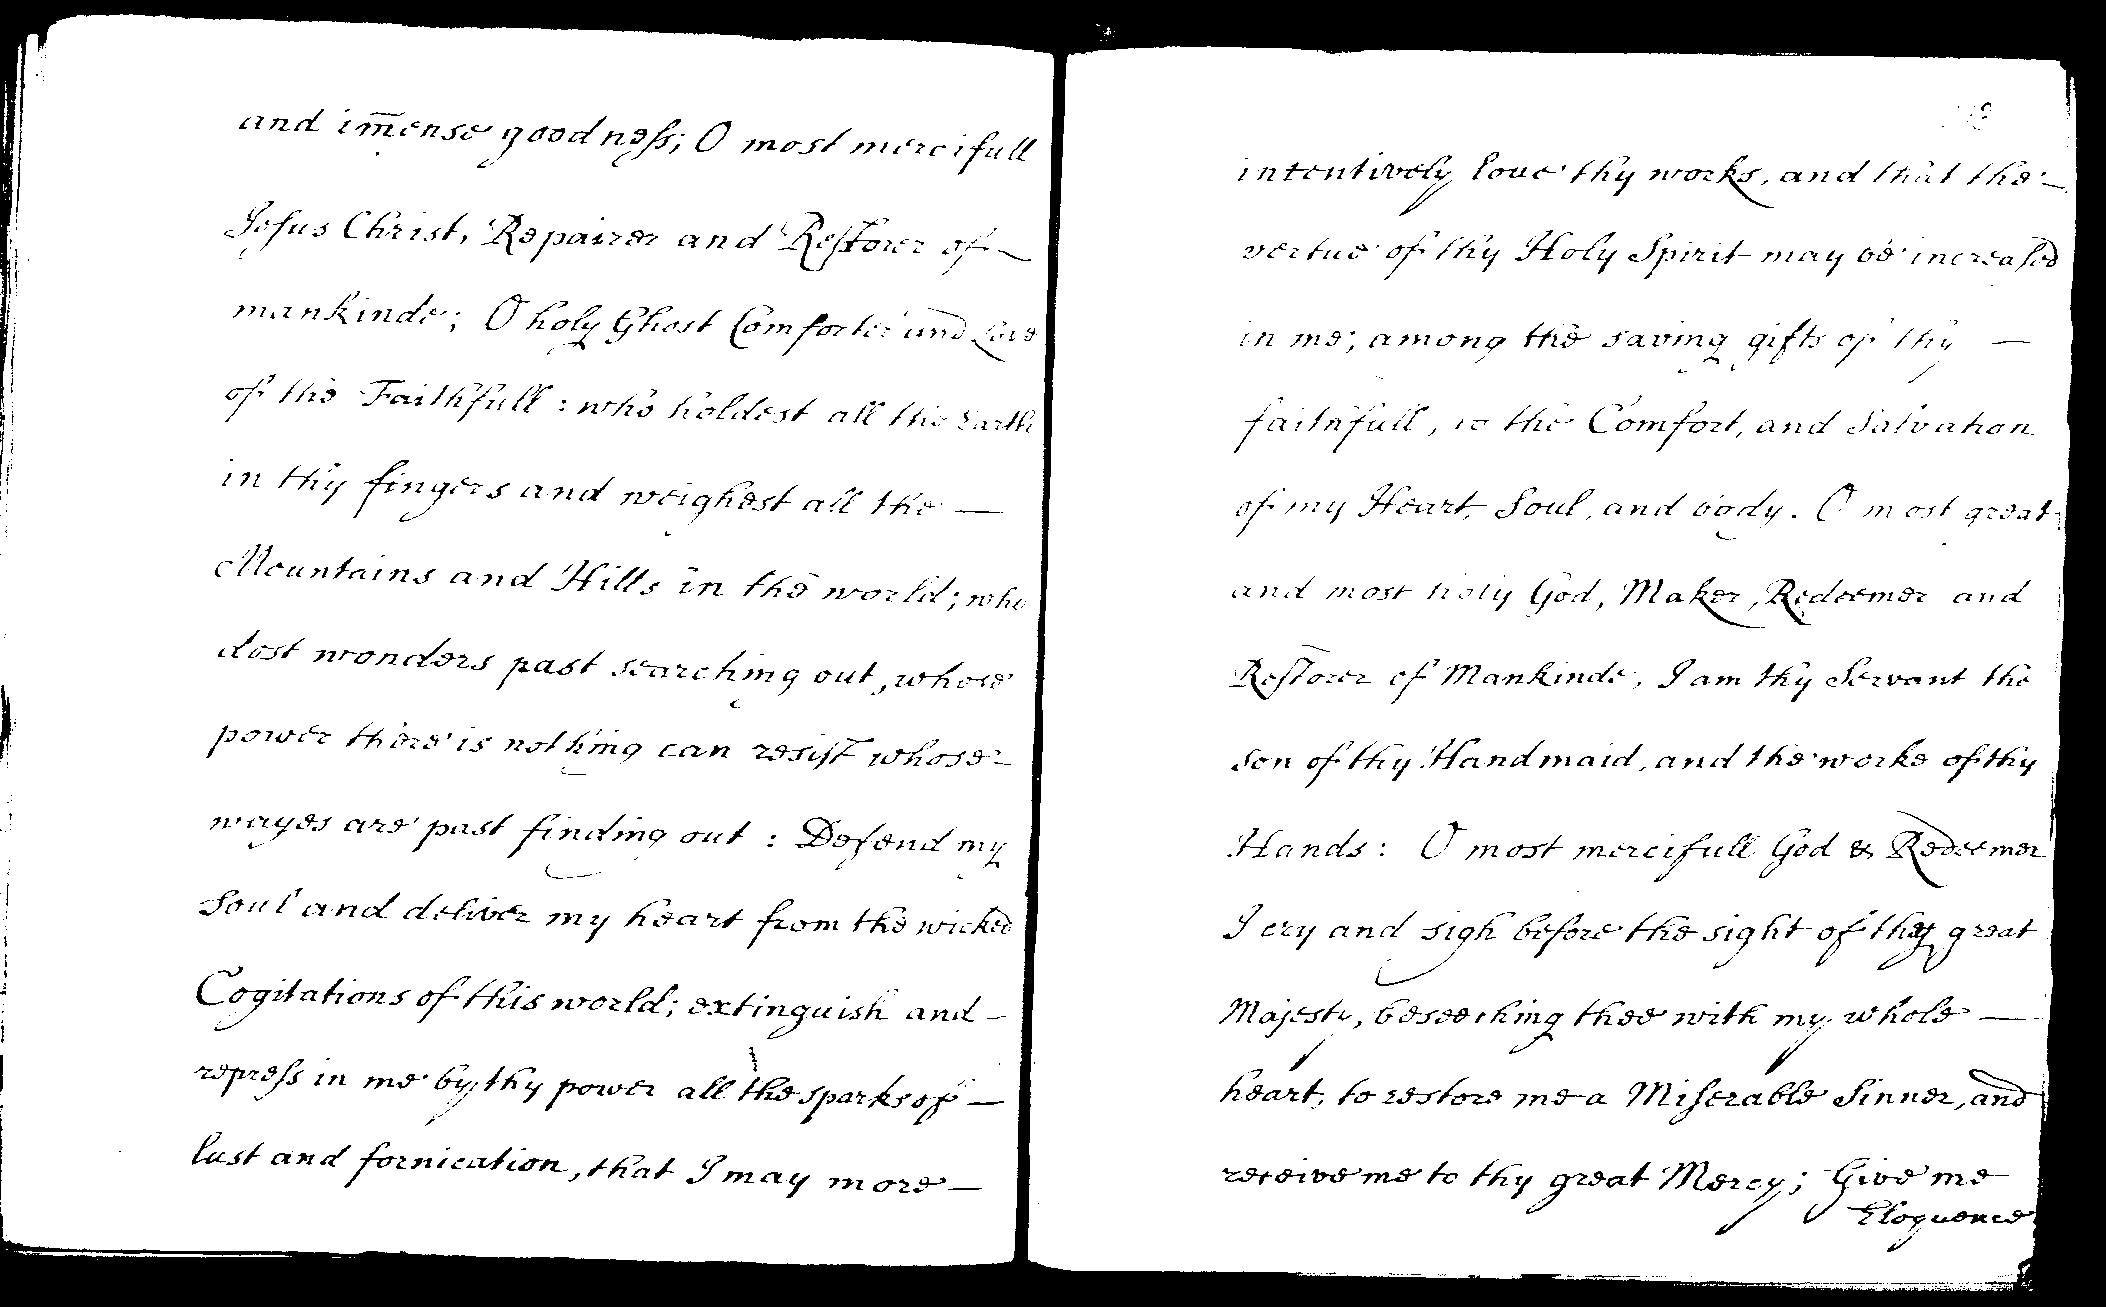 and im̅ense goodness; O most mercifull
Jesus Christ, Repairer and Restorer of —
mankinde; O holy Ghost Comforter and Love
of the Faithfull : who holdest all the Earth
in thy fingers and weighest all the —
Mountains and Hills in the world; who
dost wonders past searching out, whose
power there is nothing can resist whose —
wayes are past finding out : Defend my
Soul and deliver my heart from the wicked
Cogitations of this world; extinguish and —
repress in me by thy power all the sparks of —
lust and fornication, that I may more —
intentively love thy works, and that the —
vertue of thy Holy Spirit may be increased
in me; among the saving gifts of thy —
faithfull, to the Comfort, and Salvation
of my Heart, Soul, and body. O most great
and most holy God, Maker, Redeemer and
Restorer of Mankinde, I am thy Servant the
son of thy Handmaid, and the worke of thy
Hands : O most mercifull God & Redeemer
I cry and sigh before the sight of thy great
Majesty, beseeching thee with my whole —
heart, to restore me a Miserable Sinner, and
receive me to thy great Mercy; Give me
Eloquence